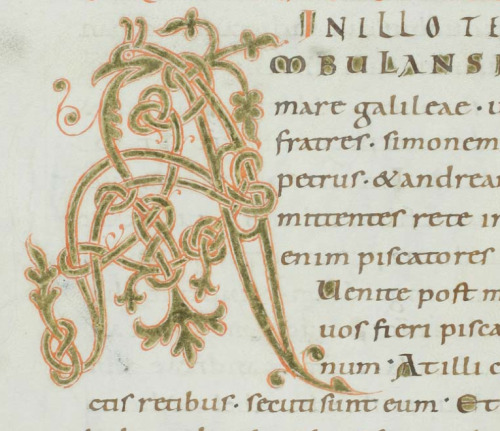 IN ILLO TE
A MBULANS
mare galileae · 
fratres · simonem
petrus · & andrea
mittentes rete in
enim piscatores
Uenite post m
uos fieri pisca
num · At illi c
ctis retibus · secuti sunt eum · Et